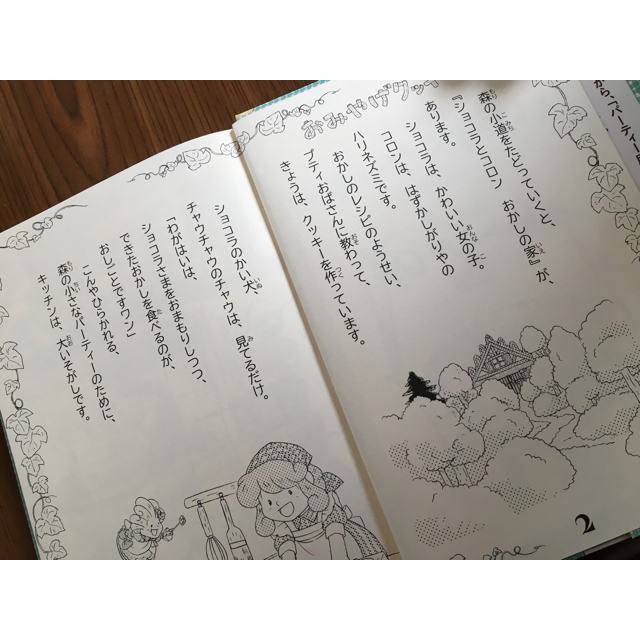 おみやげクッキ
森の小道をたどっていくと、
『ショコラとコロン　おかしの家』が、
あります。
ショコラは、かわいい女の子。
コロンは、はずかしがりやの
ハリネズミです。
おかしのレシピのようせい、
プティおばさんに教わって、
きょうは、クッキーを作っています。
2
ショコラのかい犬、
チャウチャウのチャウは、見てるだけ。
「わがはいは、
ショコラさまをおまもりしつつ、
できたおかしを食べるのが、
おしごとですワン」
こんやひらかれる、
森の小さなパーティーのために、
キッチンは、大いそがしです。
から、「パーティー